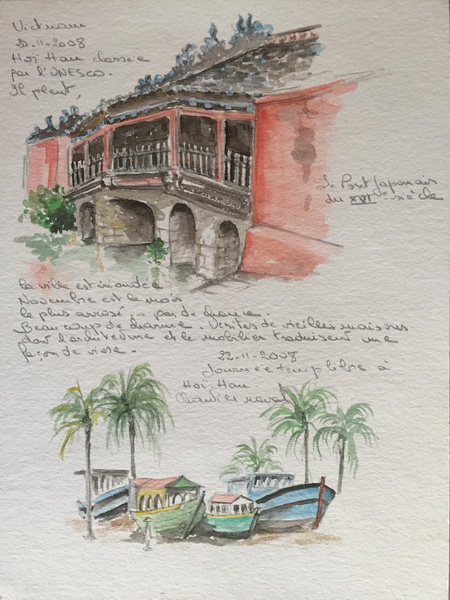 Vietnam
20-11-2008
Hoï Han classée
par l'UNESCO.
Il pleut,
Le Pont Japonais
du XVIe siècle
la ville est inondée
Novembre est le mois
le plus arrosé... pas de chance.
Beaucoup de charme. Visites de vieilles maisons
dont l'architecture et le mobilier traduisent une
façon de vivre.
22-11-2008
Journée temps libre à
Hoï Han
Chantier naval